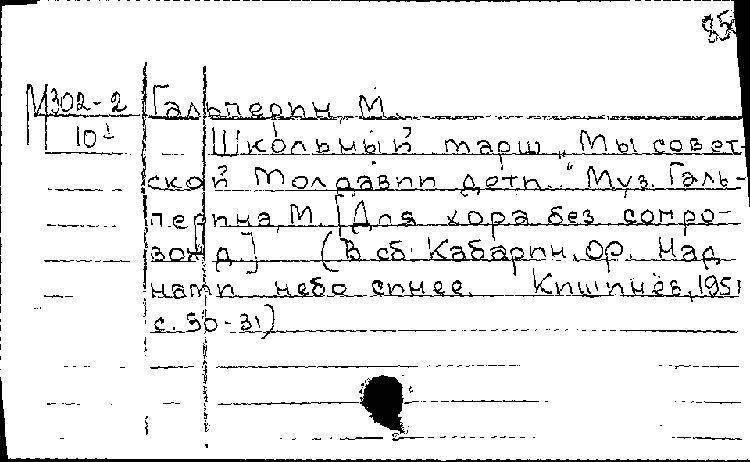 85
М302-2 Гальперин, М.
10 Школьный марш „Мы совет-
ской Молдавии дети..." Муз. Галь-
перина, М. [Для хора без сопро-
вожд.] (В сб: Кабарин, Ор. Над
нами небо синее. Кишинёв, 1951
с. 30-31)